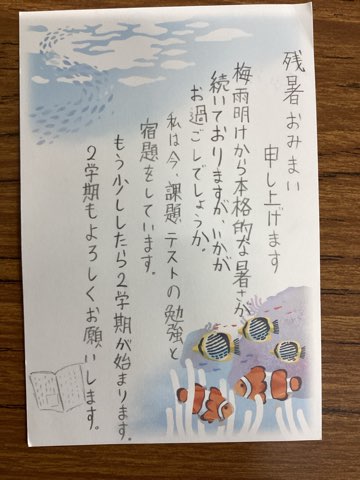 残暑おみまい
申し上げます
梅雨明けから本格的な暑さが
続いておりますが、いかが
お過ごしでしょうか。
私は今、課題テストの勉強と
宿題をしています。
もう少ししたら2学期が始まります。
2学期もよろしくお願いします。